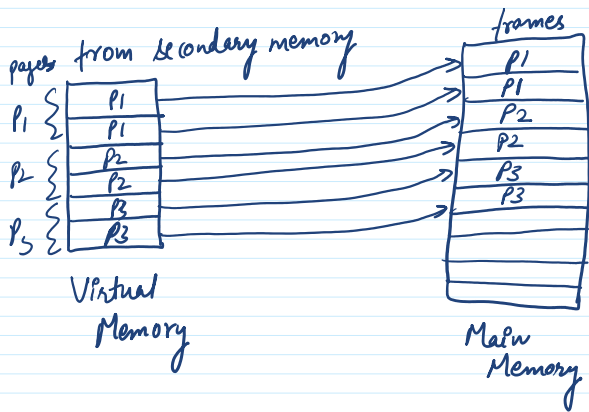 pages from secondary memory
frames
P1
P1
P1
P2
P2
P2
P3
P3
P3
P1
P1
P2
P2
P3
P3
Virtual
Memory
Main
Memory